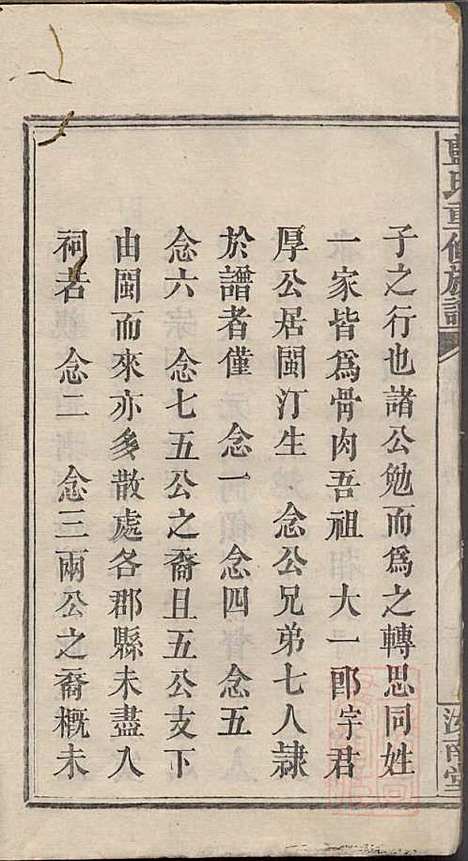 藍氏重修族譜
汝南堂
子之行也諸公勉而爲之轉思同姓
一家皆爲骨肉吾祖 大一郎字君
厚公居閩汀生 念公兄弟七人隸
於譜者僅 念一 念四 念五
念六 念七五公之裔且五公支下
由閩而來亦多散處各郡縣未盡入
祠若 念二 念三兩公之裔概未